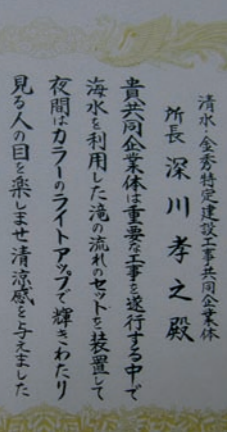 清水・金秀特定建設工事共同企業体
所長 深川孝之殿
貴共同企業体は重要な工事を遂行する中で
海水を利用した滝の流れのセットを装置して
夜間はカラーのライトアップで輝きわたり
見る人の目を楽しませ清涼感を与えました